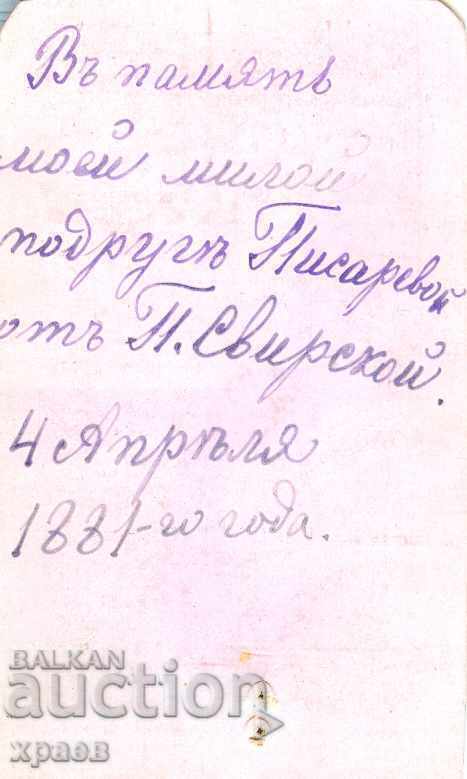 Въ память
моей милой
подругѣ Писаревой
отъ П. Свирской.
4 Апрѣля
1881-го года.
BALKAN
auction
храев